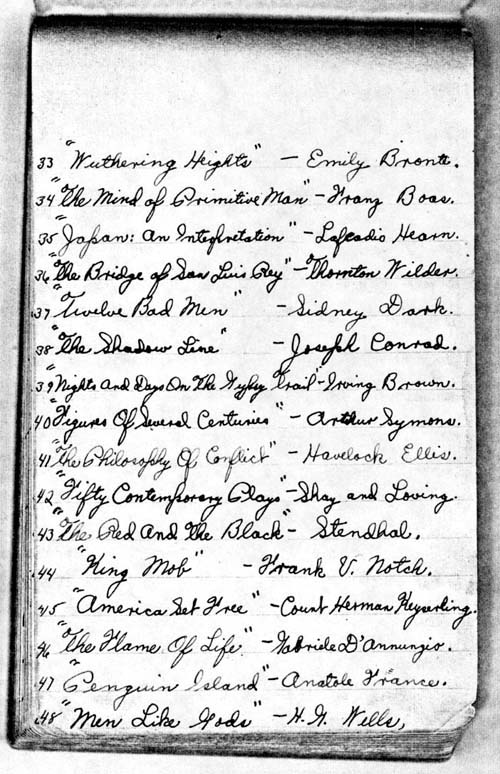 33 "Wuthering Heights" - Emily Bronte.
34 "The Mind of Primitive Man" - Franz Boas.
35 "Japan: An Interpretation" - Lafcadio Hearn.
36 "The Bridge of San Luis Rey" - Thornton Wilder.
37 "Twelve Bad Men" - Sidney Dark.
38 "The Shadow Line" - Joseph Conrad.
39 "Nights And Days On The Gypsy Trail" - Irving Brown.
40 "Figures Of Several Centuries" - Arthur Symons.
41 "The Philosophy Of Conflict" - Havelock Ellis.
42 "Fifty Contemporary Plays" - Shay and Loving.
43 "The Red And The Black" - Stendhal.
44 "King Mob" - Frank V. Notch.
45 "America Set Free" - Count Herman Keyserling.
46 "The Flame Of Life" - Gabriele D'Annunzio.
47 "Penguin Island" - Anatole France.
48 "Men Like Gods" - H. G. Wells,